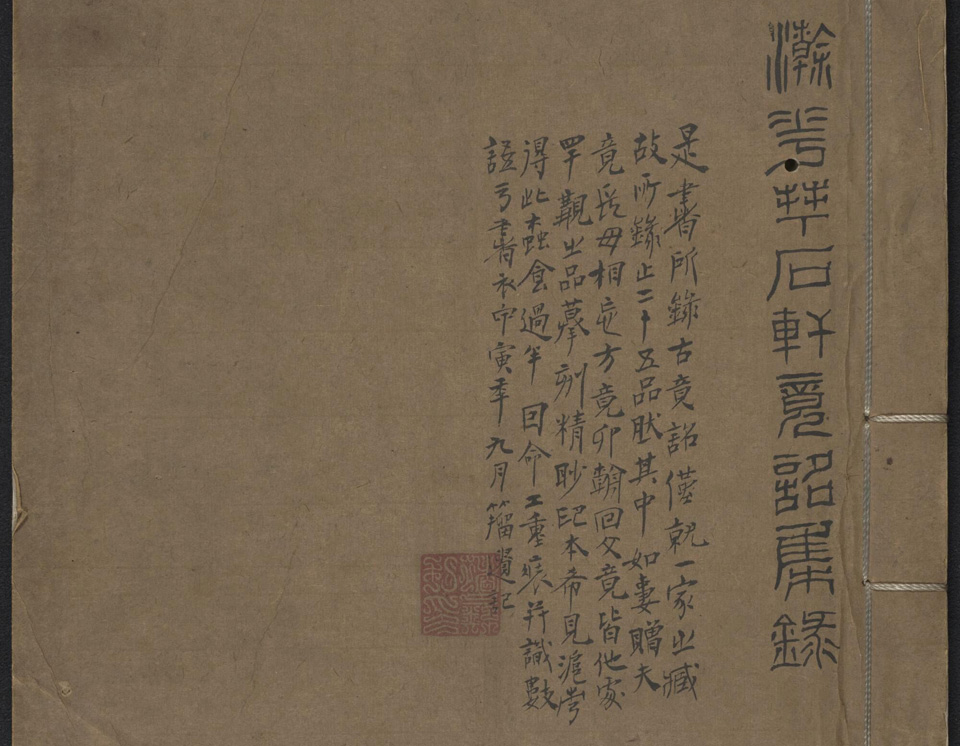 澣花拜石軒竟詺集錄
是書所錄古竟詺僅就一家之臧
故所錄止二十五品肰其中如妻贈夫
竟長毋相忘方竟卯翰回文竟皆他處
罕覯之品摹刻精眇印本希見滬
得此蟲食過半因命工重裝并識數
語于書衣甲寅年九月籀遺記